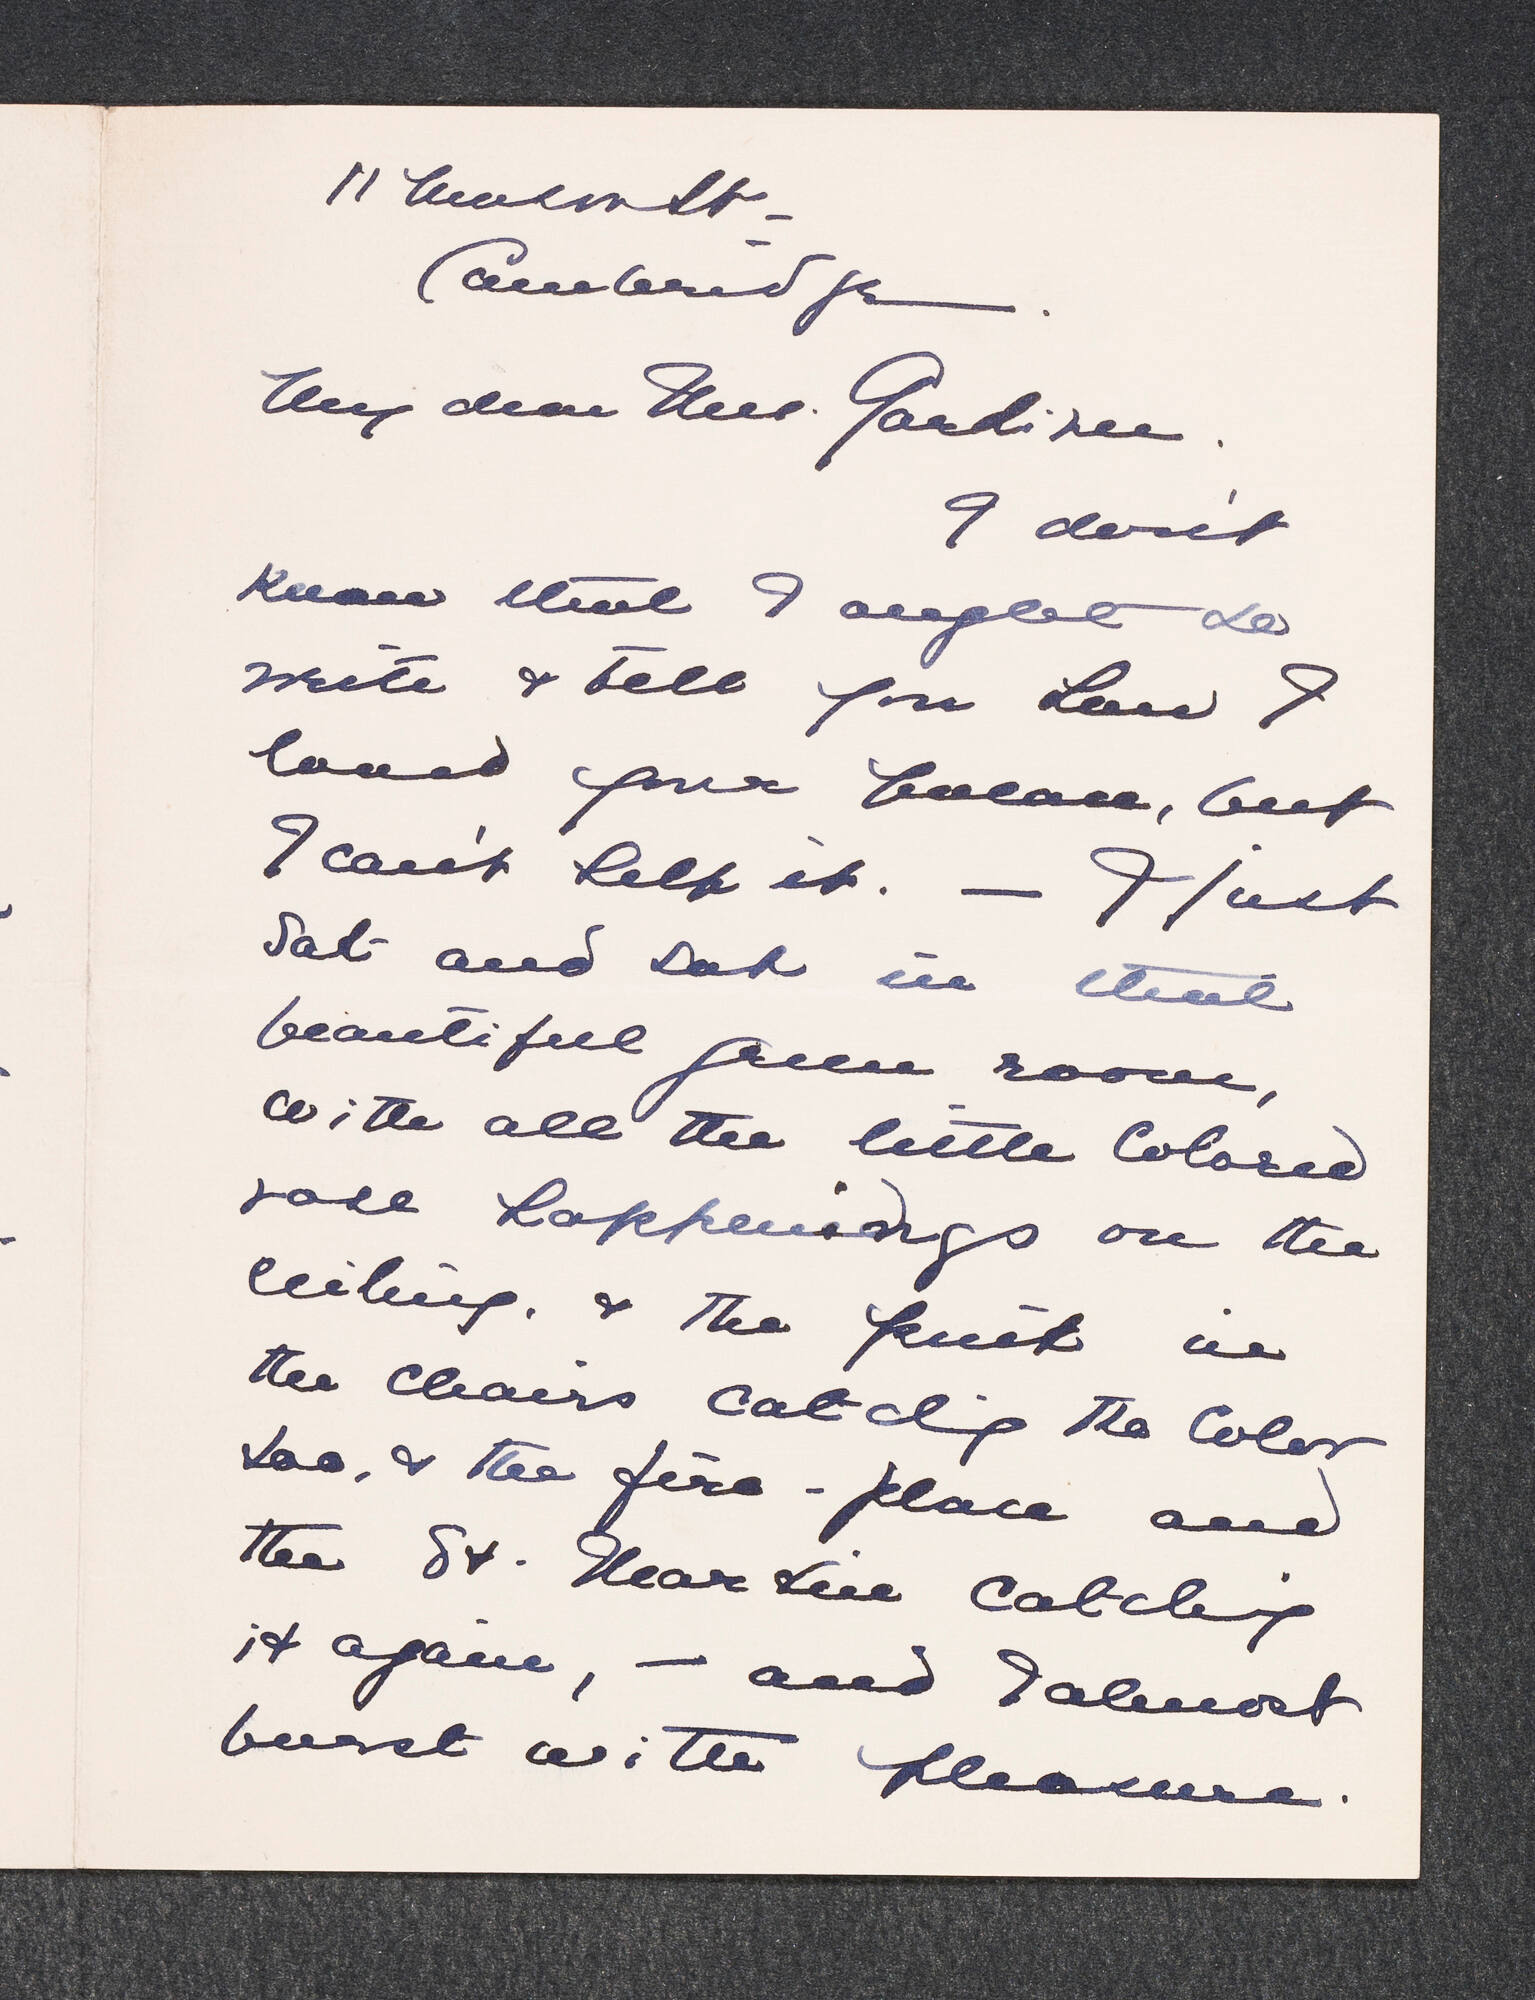 11 Mason St -
Cambridge .
My dear Mrs. Gardiner .
I don't
know that I ought to
write & tell you how I
loved your house, but
I can't help it. — I just
sat and sat in that
beautiful green room,
with all the little colored
rose happenings on the
ceiling, & the fruit in
the chairs catching the color
too, & the fire-place and
the St. Martin catching
it again, — and I almost
burst with pleasure.